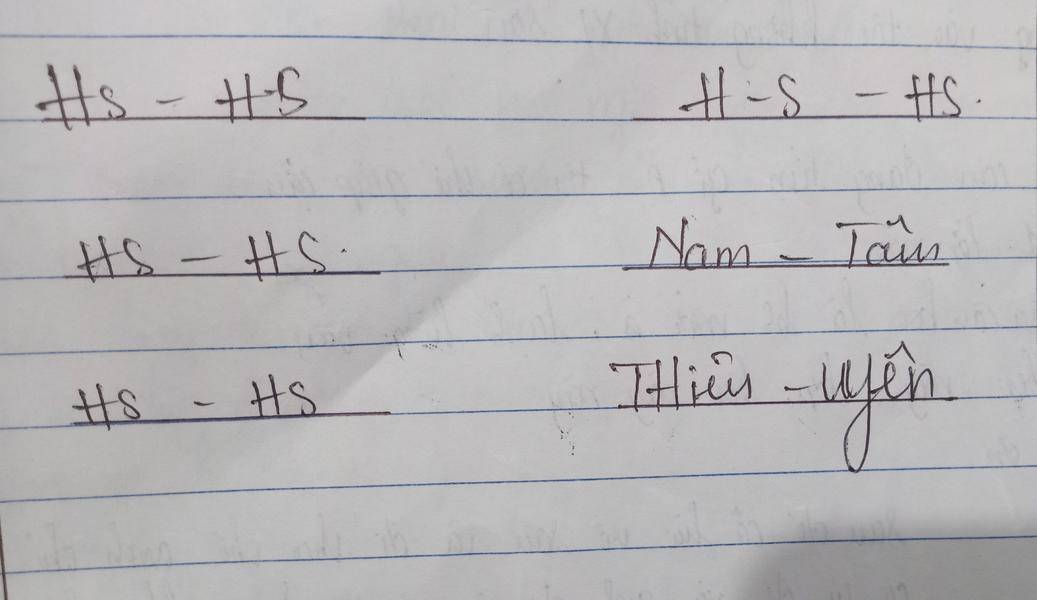 HS - HS H-S - HS.
HS - HS. Nam - Tâm
HS - HS THiên - Uyên